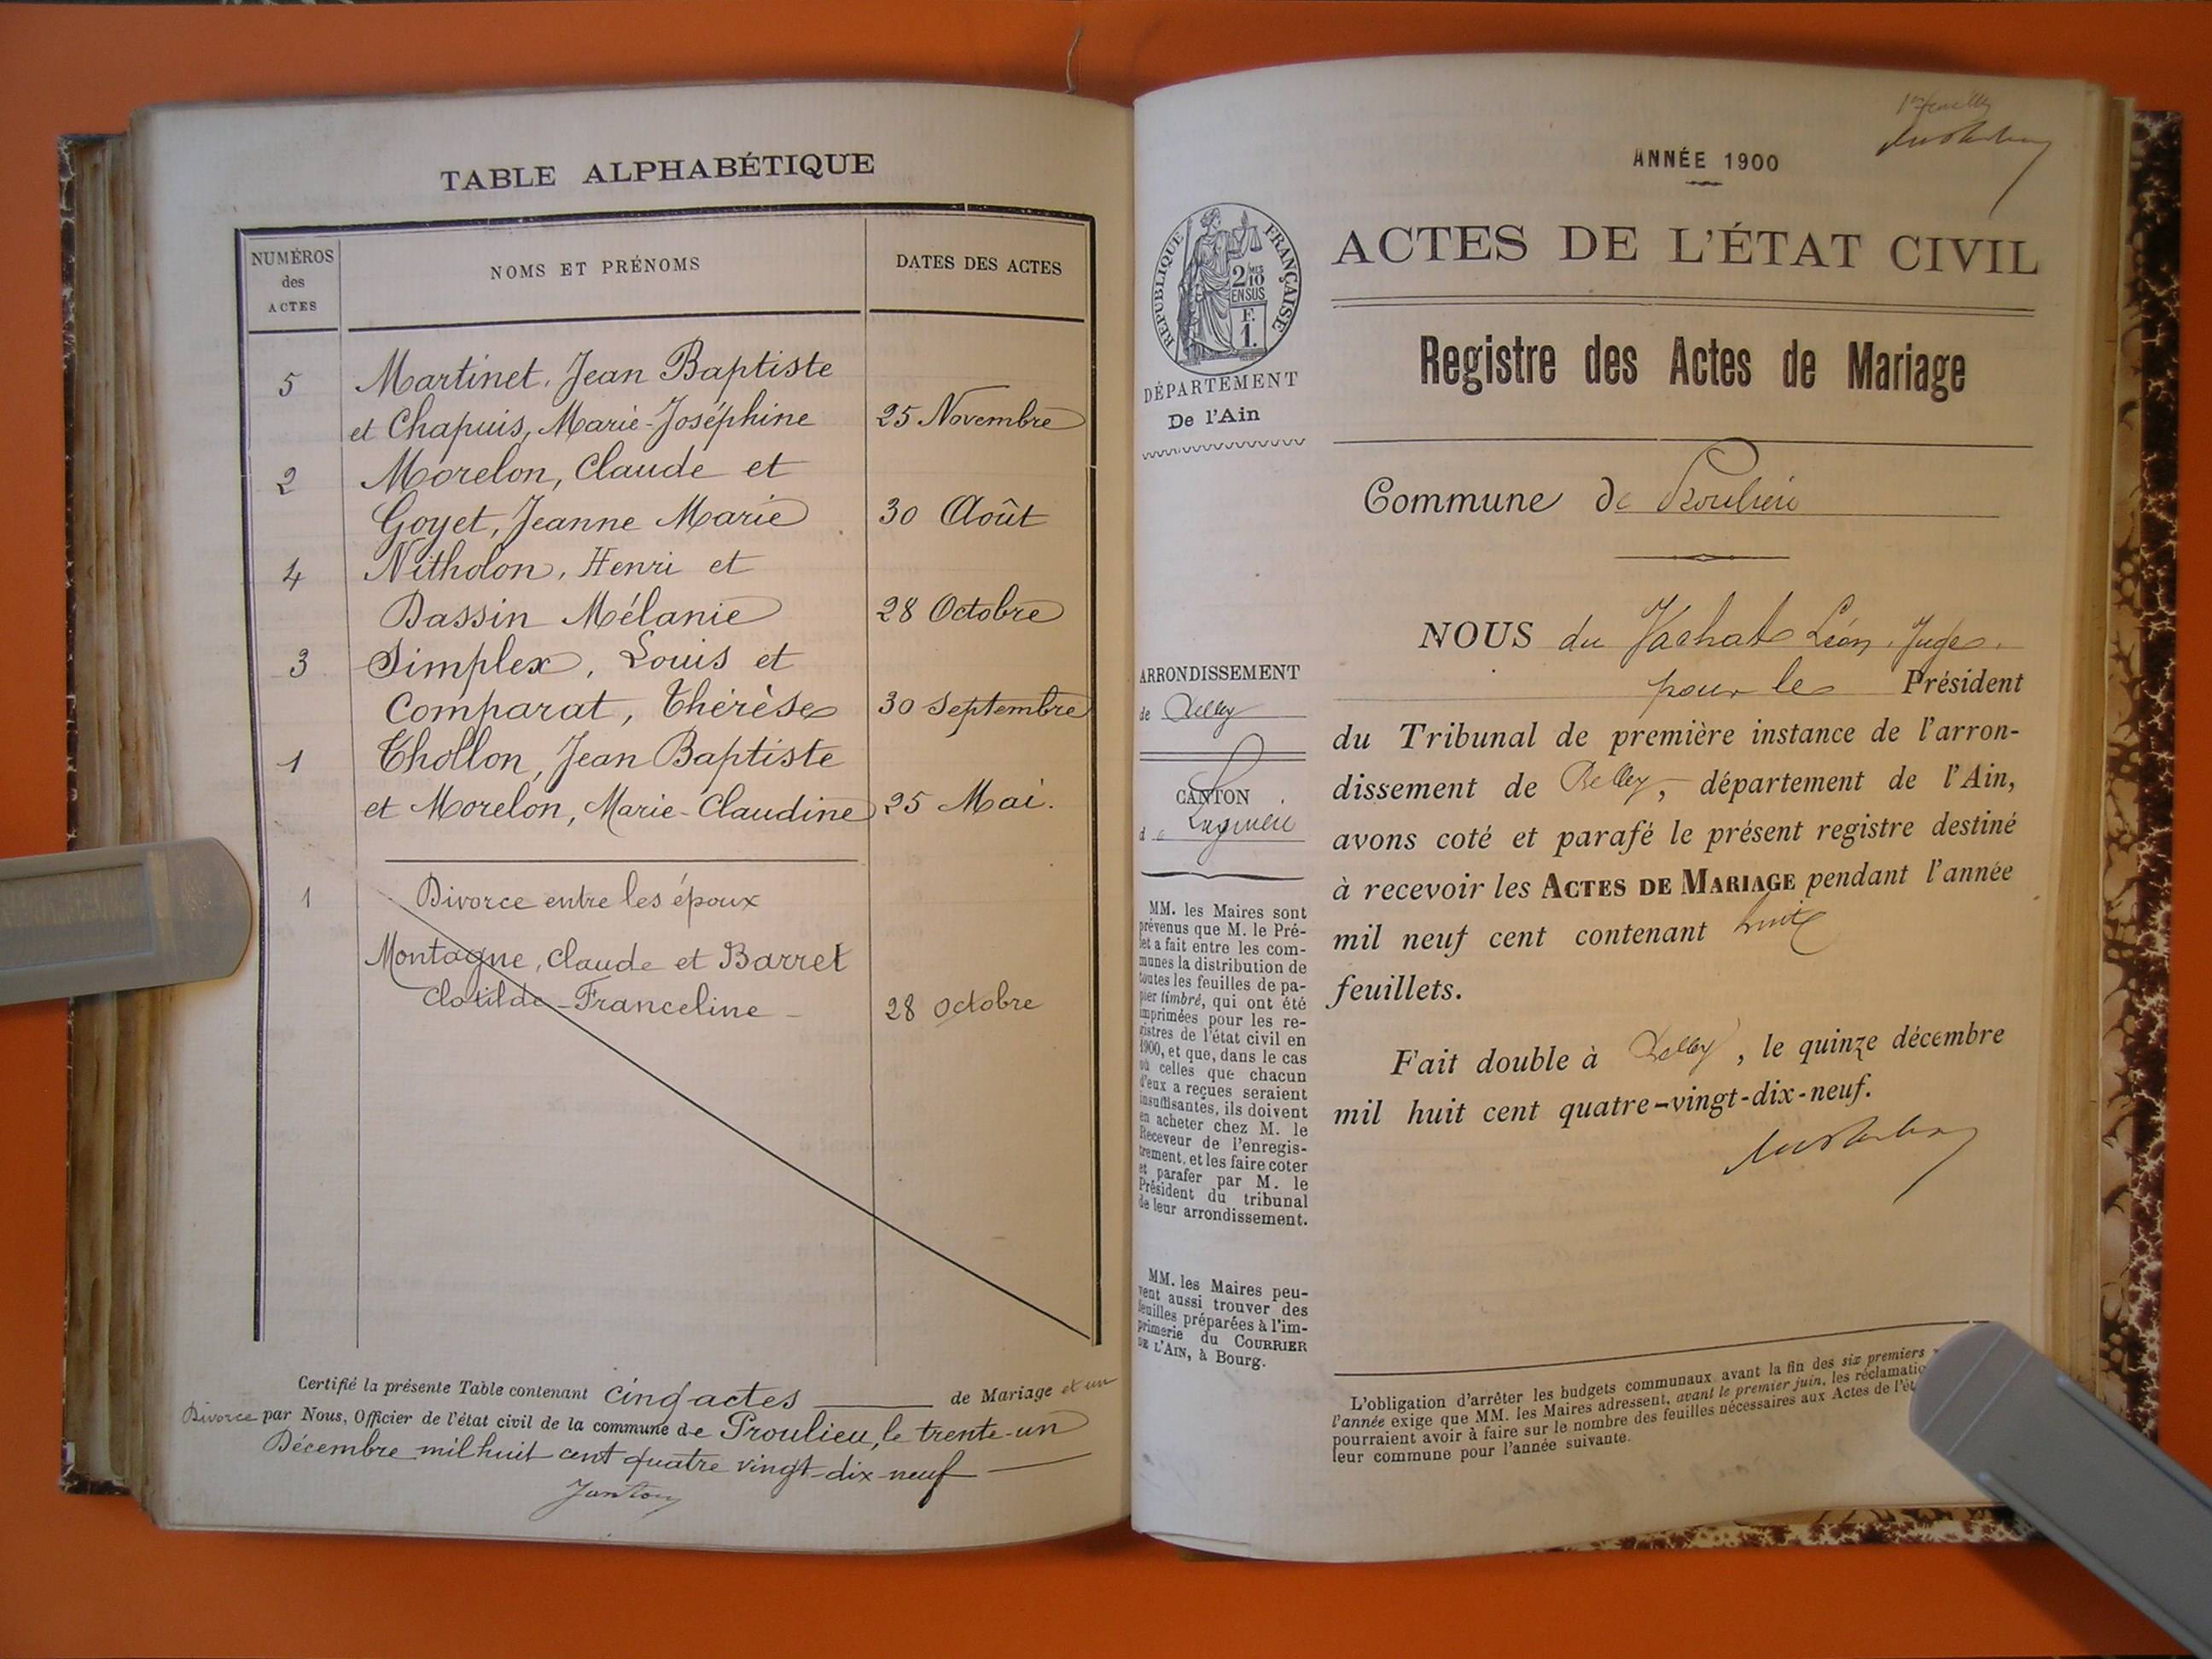 TABLE ALPHABÉTIQUE
NUMÉROS
des
ACTES
NOMS ET PRÉNOMS
DATES DES ACTES
5 Martinet, Jean Baptiste
et Chapuis, Marie-Joséphine 25 Novembre
2 Morelon, Claude et
Goyet, Jeanne Marie 30 Août
4 Nitholon, Henri et
Dassin Mélanie 28 Octobre
3 Simplex, Louis et
Comparat, Thérèse 30 Septembre
1 Thollon, Jean Baptiste
et Morelon, Marie-Claudine 25 Mai.
1 Divorce entre les époux
Montagne, Claude et Barret
Clotilde-Franceline - 28 octobre
Certifié la présente Table contenant cinq actes de Mariage et un
Divorce par Nous, Officier de l'état civil de la commune de Proulieu, le trente-un
Décembre mil huit cent quatre vingt-dix-neuf
ANNÉE 1900
RÉPUBLIQUE FRANÇAISE
2/10 MES
EN SUS
F.
1.
DÉPARTEMENT
De l'Ain
ACTES DE L'ÉTAT CIVIL
Registre des Actes de Mariage
Commune de Proulieu
ARRONDISSEMENT
de Belley
CANTON
de Lagnieu
MM. les Maires sont
prévenus que M. le Pré-
fet a fait entre les com-
munes la distribution de
toutes les feuilles de pa-
pier timbré, qui ont été
imprimées pour les re-
gistres de l'état civil en
1900, et que, dans le cas
où celles que chacun
d'eux a reçues seraient
insuffisantes, ils doivent
en acheter chez M. le
Receveur de l'enregis-
trement, et les faire coter
et parafer par M. le
Président du tribunal
de leur arrondissement.
MM. les Maires peu-
vent aussi trouver des
feuilles préparées à l'im-
primerie du COURRIER
DE L'AIN, à Bourg.
NOUS du Vachat Léon, Juge.
pour le Président
du Tribunal de première instance de l'arron-
dissement de Belley, département de l'Ain,
avons coté et parafé le présent registre destiné
à recevoir les ACTES DE MARIAGE pendant l'année
mil neuf cent contenant huit
feuillets.
Fait double à Belley, le quinze décembre
mil huit cent quatre-vingt-dix-neuf.
L'obligation d'arrêter les budgets communaux avant la fin des six premiers
l'année exige que MM. les Maires adressent, avant le premier juin, les réclamatio
pourraient avoir à faire sur le nombre des feuilles nécessaires aux Actes de l'ét
leur commune pour l'année suivante.